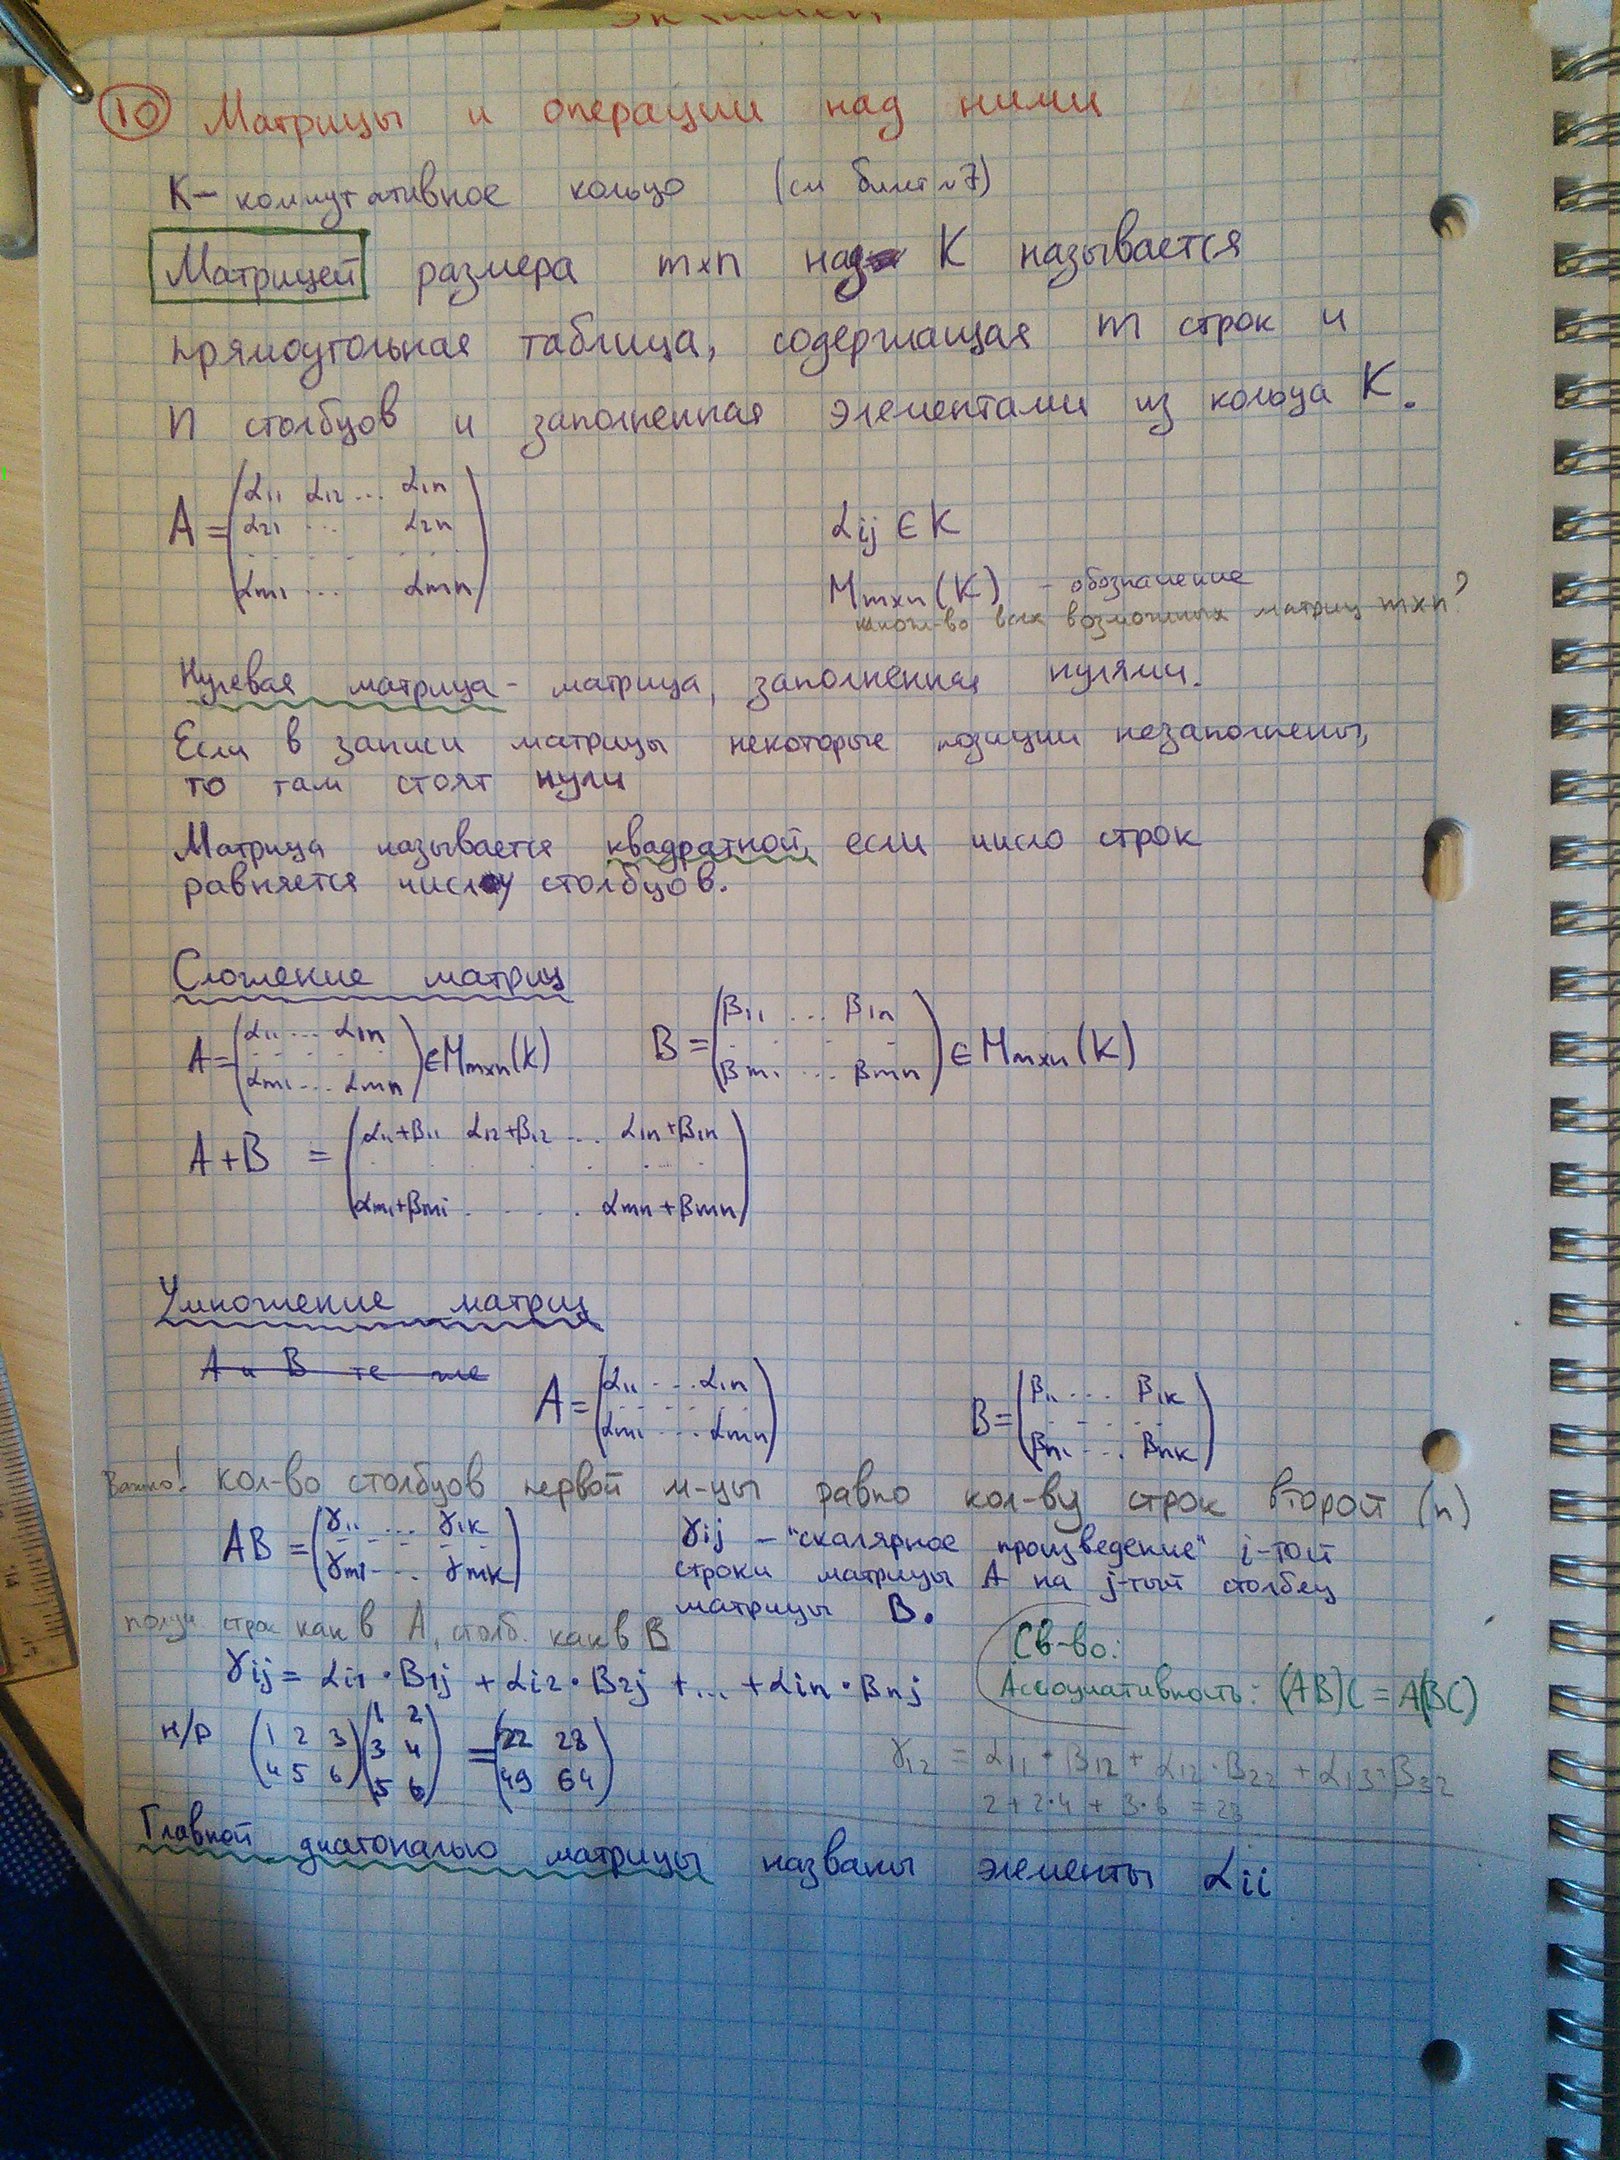 10 Матрицы и операции над ними
K – коммутативное кольцо (см билет №7)
Матрицей размера m×n над K называется
прямоугольная таблица, содержащая m строк и
n столбцов и заполненная элементами из кольца K.
A = (α11 α12 ... α1n
α21 ... α2n
. . . . . .
αm1 ... αmn)
αij ∈ K
Mm×n(K) – обозначение
множ-во всех возможных матриц m×n?
Нулевая матрица – матрица, заполненная нулями.
Если в записи матрицы некоторые позиции незаполнены,
то там стоят нули
Матрица называется квадратной, если число строк
равняется числу столбцов.
Сложение матриц
A = (α11 ... α1n
. . . . . .
αm1 ... αmn) ∈ Mm×n(K)
B = (β11 ... β1n
. . . . .
βm1 ... βmn) ∈ Mm×n(K)
A+B = (α11+β11 α12+β12 ... α1n+β1n
. . . . . .
αm1+βm1 . . . . αmn+βmn)
Умножение матриц
A и B те же
A = (α11 ... α1n
. . . . . .
αm1 ... αmn)
B = (β11 ... β1k
. . . . .
βn1 ... βnk)
Важно! кол-во столбцов первой м-цы равно кол-ву строк второй (n)
AB = (γ11 ... γ1k
. . . . . .
γm1 ... γmk)
γij – "скалярное произведение" i-той
строки матрицы A на j-тый столбец
матрицы B.
получ. строк как в A, столб. как в B
Св-во:
Ассоциативность: (AB)C = A(BC)
γij = αi1·β1j + αi2·β2j + ... + αin·βnj
н/р (1 2 3
4 5 6) (1 2
3 4
5 6) = (22 28
49 64)
γ12 = α11·β12 + α12·β22 + α13·β32
2+2·4+3·6 = 28
Главной диагональю матрицы названы элементы αii